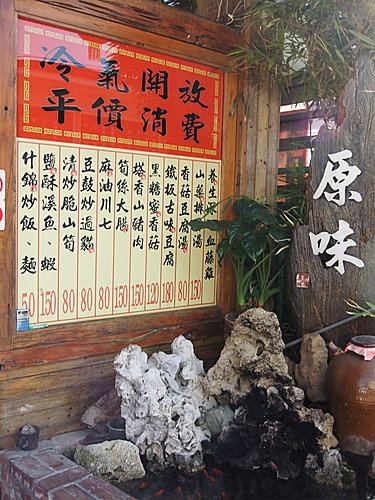 冷氣開放
平價消費
養生血藤雞
山藥湯
香菇豆腐湯
鐵板古味豆腐
黑糖蜜香菇
塔香山豬肉
筍絲大腸
麻油川七
豆鼓炒過貓
清炒脆山筍
鹽酥溪魚、蝦
什錦炒飯、麵
50 150 80 80 80 150 150 120 180 80 150
原味